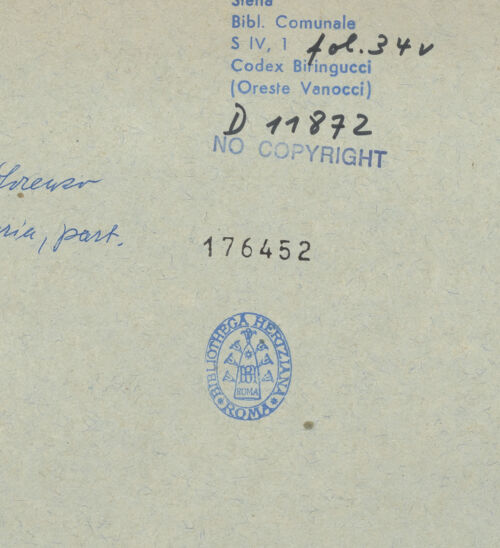 Siena
Bibl. Comunale
S IV, 1 fol. 34v
Codex Biringucci
(Oreste Vanocci)
D 11872
NO COPYRIGHT
Lorenzo
ria, part.
176452
BIBLIOTHECA HERTZIANA
ROMA
ROMA